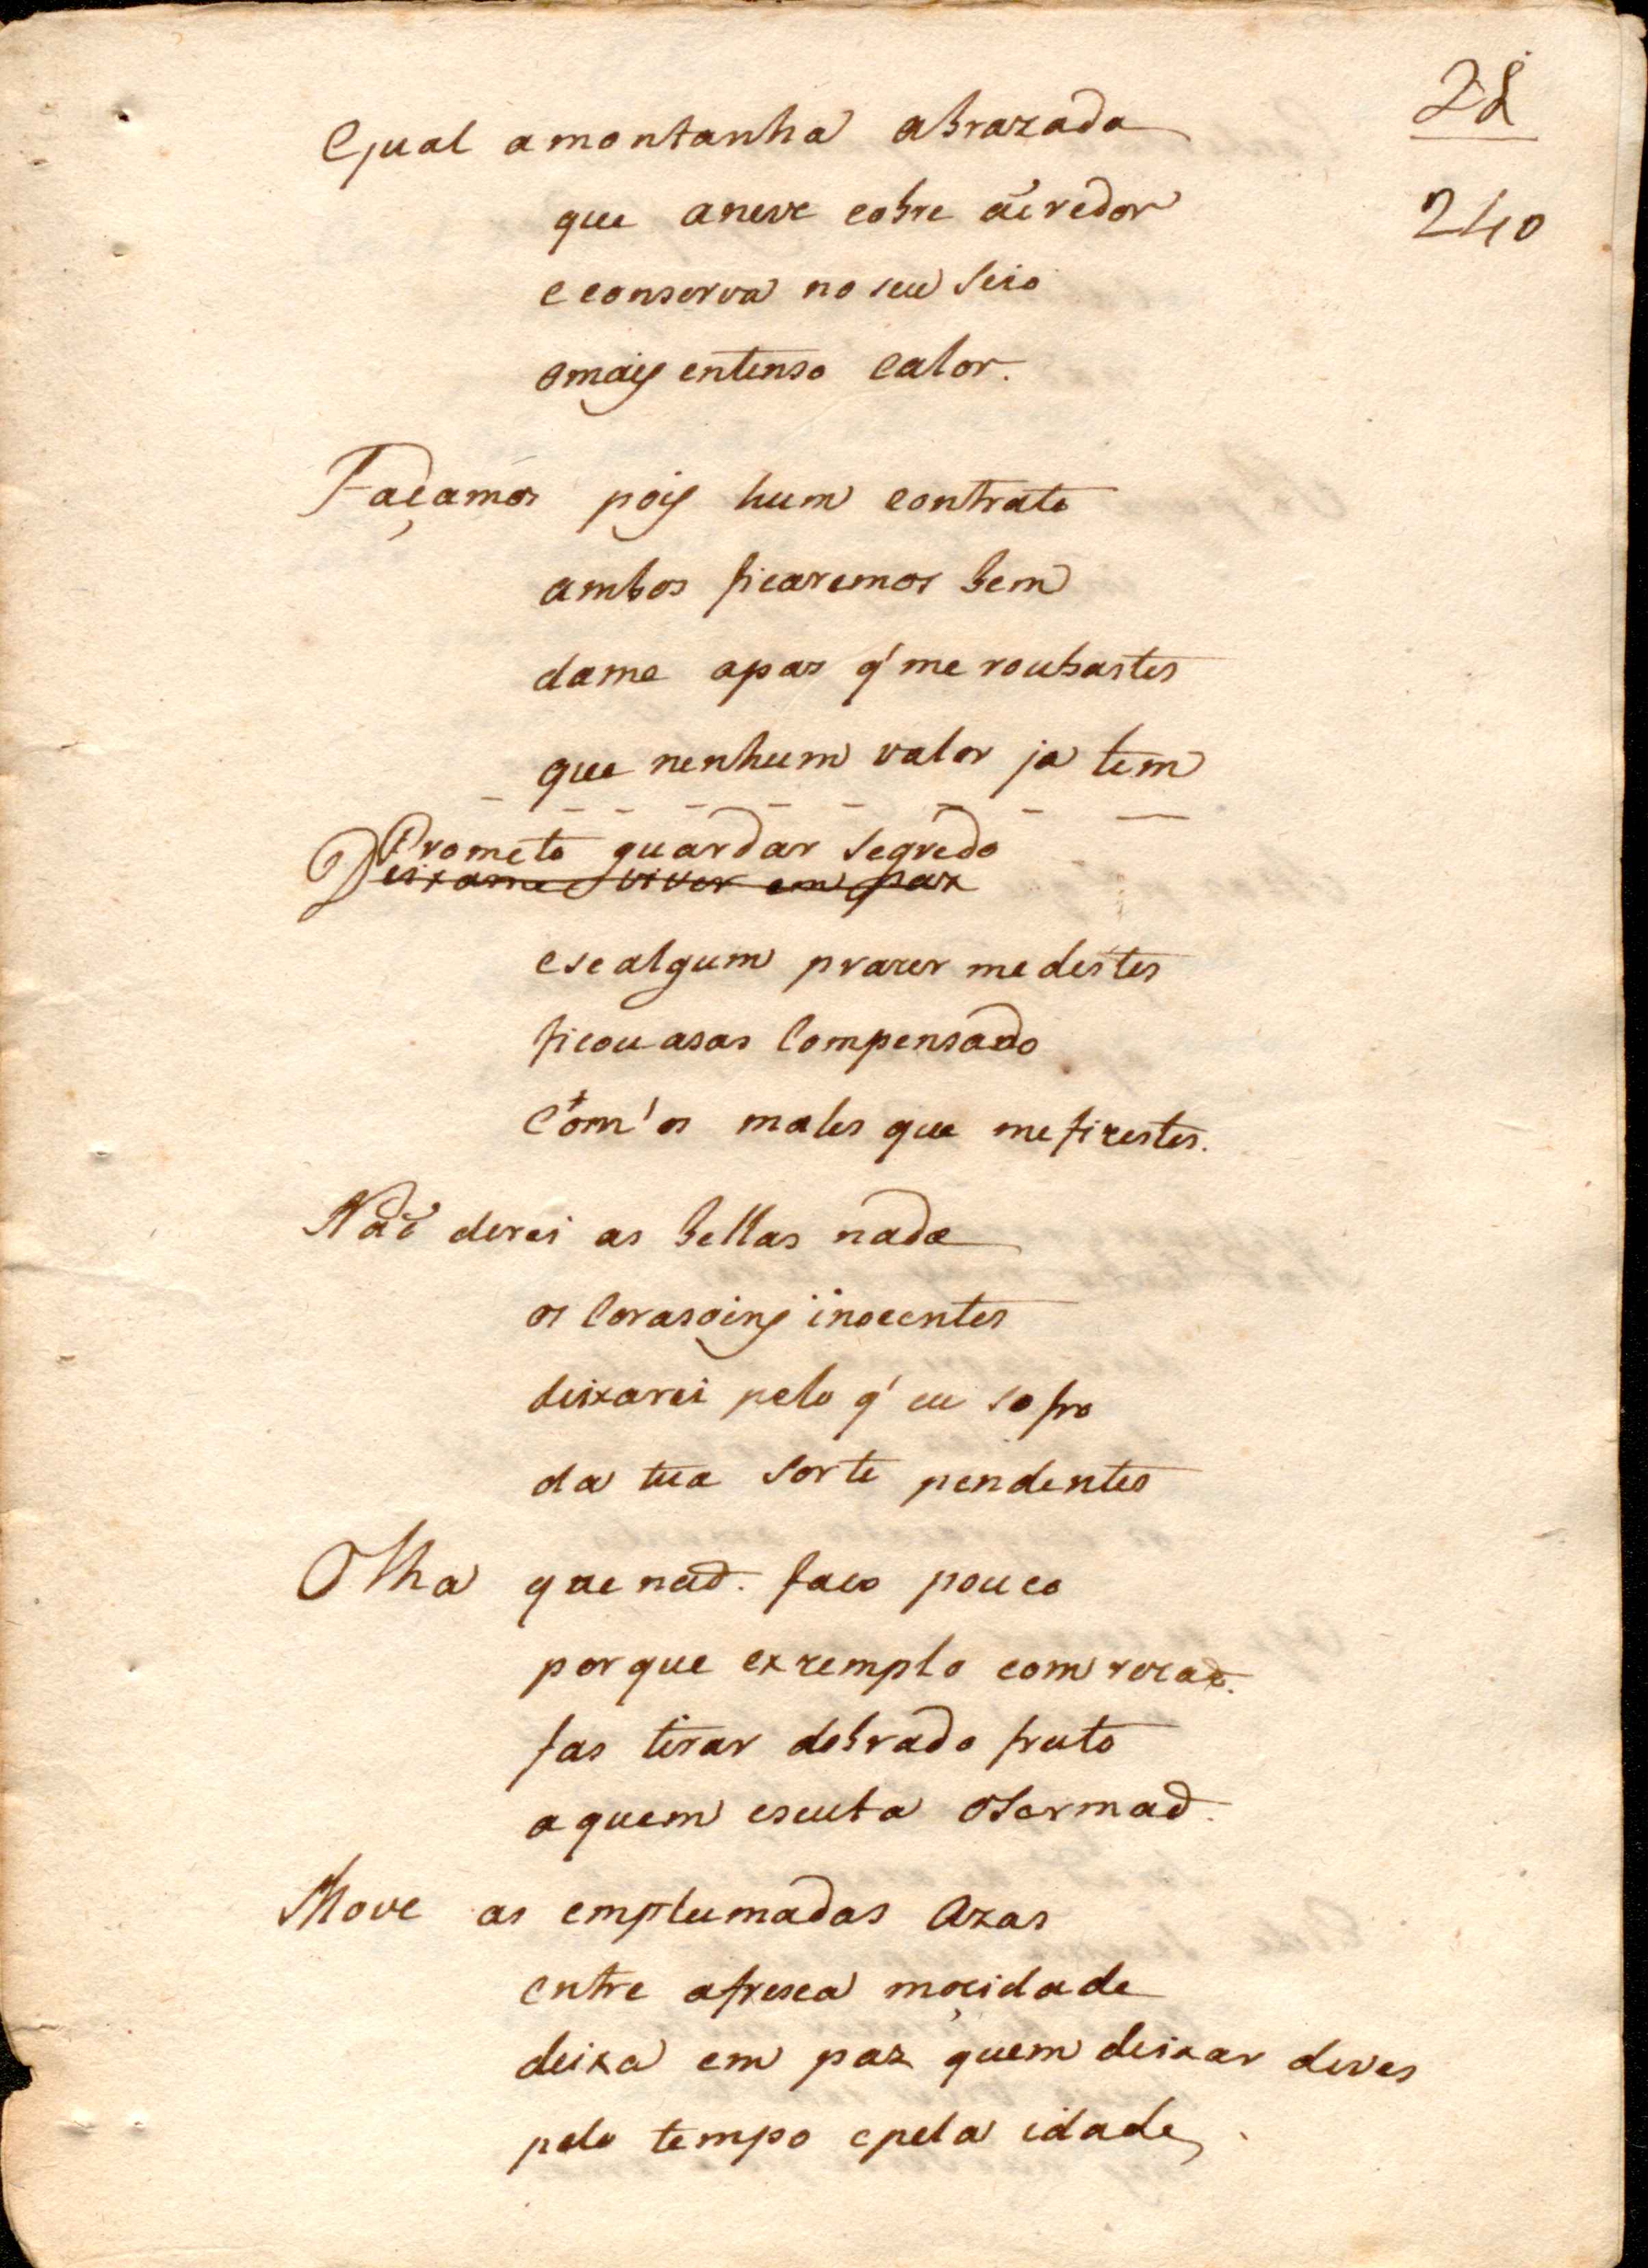 28
240
Egual amontanha abrazada
que aneve cobre áeredor
econserva no seu seio
omais entenso calor.
Façamos pois hum contrato
ambos ficaremos bem
dame apas q' me roubastes
que nenhum valor ja tem
Prometo guardar segredo
Deixame viver em paz
ese algum prazer me destes
ficou asas Compensado
Com' os males que me fizestes.
Naõ derei as bellas nada
os Corasoins inocentes
deixarei pelo q' eu sofro
da tua sorte pendentes
Olha que naõ. faco pouco
porque exzemplo com rezaõ.
fas tirar dobrado fruto
aquem escuta oSermaõ.
Move as emplumadas Azas
entre afresca moçidade
deixa em paz quem deixar deves
pelo tempo epela idade,